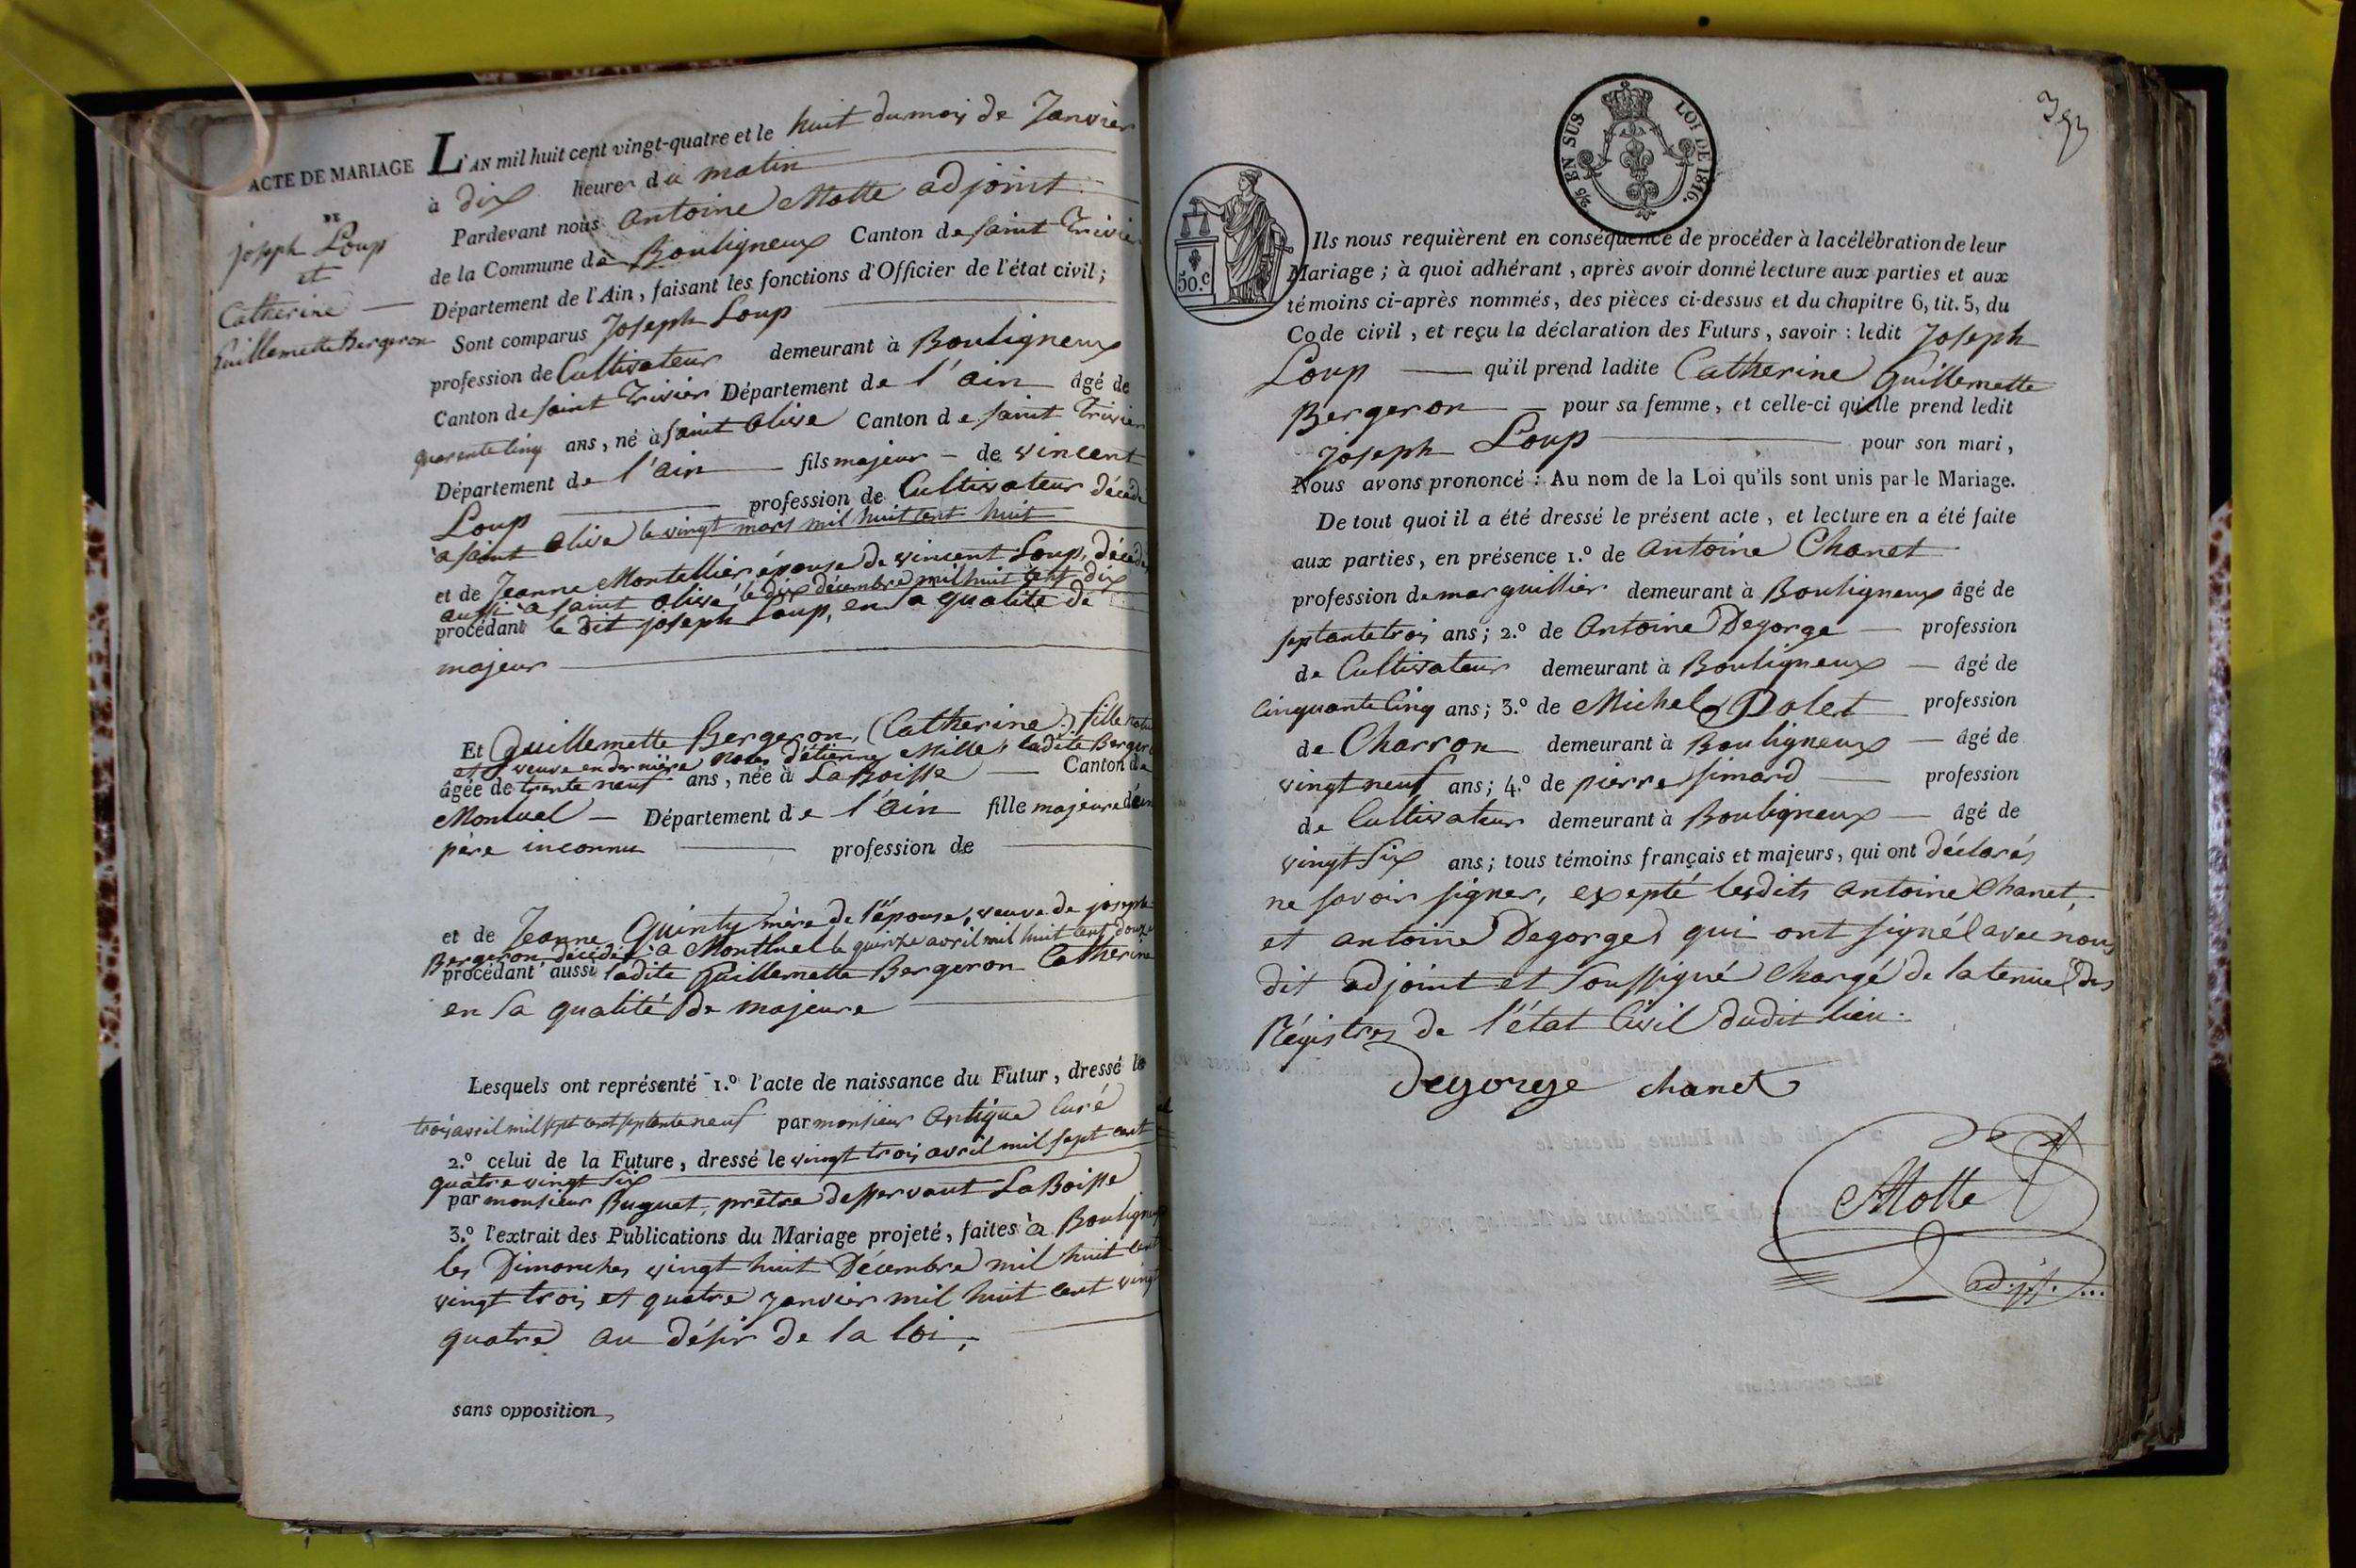 ACTE DE MARIAGE
DE
joseph Loup
et
Catherine
Guillemette Bergeron
L'AN mil huit cent vingt-quatre et le huit du mois de Janvier
à dix heures du matin
Pardevant nous Antoine Motte adjoint
de la Commune de Bouligneux Canton de saint Trivier
Département de l'Ain, faisant les fonctions d'Officier de l'état civil;
Sont comparus Joseph Loup
profession de Cultivateur demeurant à Bouligneux
Canton de saint Trivier Département de l'ain âgé de
quarente cinq ans, né à saint Olive Canton de saint Trivier
Département de l'ain fils majeur de vincent
Loup profession de Cultivateur décédé
a saint Olive le vingt mars mil huit cent huit
et de Jeanne Montellier épouse de vincent Loup, décédée
aussi a saint Olive, le dix décembre mil huit cent dix
procédant le dit joseph Loup, en sa qualité de
majeur
Et Guillemette Bergeron, (Catherine) fille
et veuve en dernière noces d'étienne Mille, ladite Bergeron
âgée de trente neuf ans, née à La Boisse Canton de
Montuel Département de l'ain fille majeure d'un
père inconnu profession de
et de Jeanne Quinty mère de l'épouse, veuve de joseph
Bergeron décédée a Montluel le quinze avril mil huit cent douze
procédant aussi ladite Guillemette Bergeron Catherine
en sa qualité de majeure
Lesquels ont représenté 1.º l'acte de naissance du Futur, dressé le
trois avril mil sept cent septante neuf par monsieur Antique Curé
2.º celui de la Future, dressé le vingt trois avril mil sept cent
quatre vingt six
par monsieur Buguet, prêtre desservant La Boisse
3.º l'extrait des Publications du Mariage projeté, faites à Bouligneux
les Dimanches vingt huit Décembre mil huit cent
vingt trois et quatre janvier mil huit cent vingt
quatre au désir de la loi,
sans opposition,
2/5 EN SUS LOI DE 1816.
50.C
Ils nous requièrent en conséquence de procéder à la célébration de leur
Mariage; à quoi adhérant, après avoir donné lecture aux parties et aux
témoins ci-après nommés, des pièces ci-dessus et du chapitre 6, tit. 5, du
Code civil, et reçu la déclaration des Futurs, savoir: ledit Joseph
Loup qu'il prend ladite Catherine Guillemette
Bergeron pour sa femme, et celle-ci qu'elle prend ledit
Joseph Loup pour son mari,
Nous avons prononcé: Au nom de la Loi qu'ils sont unis par le Mariage.
De tout quoi il a été dressé le présent acte, et lecture en a été faite
aux parties, en présence 1.º de Antoine Chanet
profession de marguillier demeurant à Bouligneux âgé de
septante trois ans; 2.º de Antoine Degorge profession
de Cultivateur demeurant à Bouligneux âgé de
Cinquante Cinq ans; 3.º de Michel Dolet profession
de Charron demeurant à Bouligneux âgé de
vingt neuf ans; 4.º de pierre Simard profession
de Cultivateur demeurant à Bouligneux âgé de
vingt six ans; tous témoins français et majeurs, qui ont déclarés
ne savoir signer, expepté lesdits Antoine Chanet,
et Antoine Degorge qui ont signé avec nous
dit adjoint et soussigné Chargé de la tenue des
Régistres de l'état Civil dudit lieu.
Degorge chanet
Motte